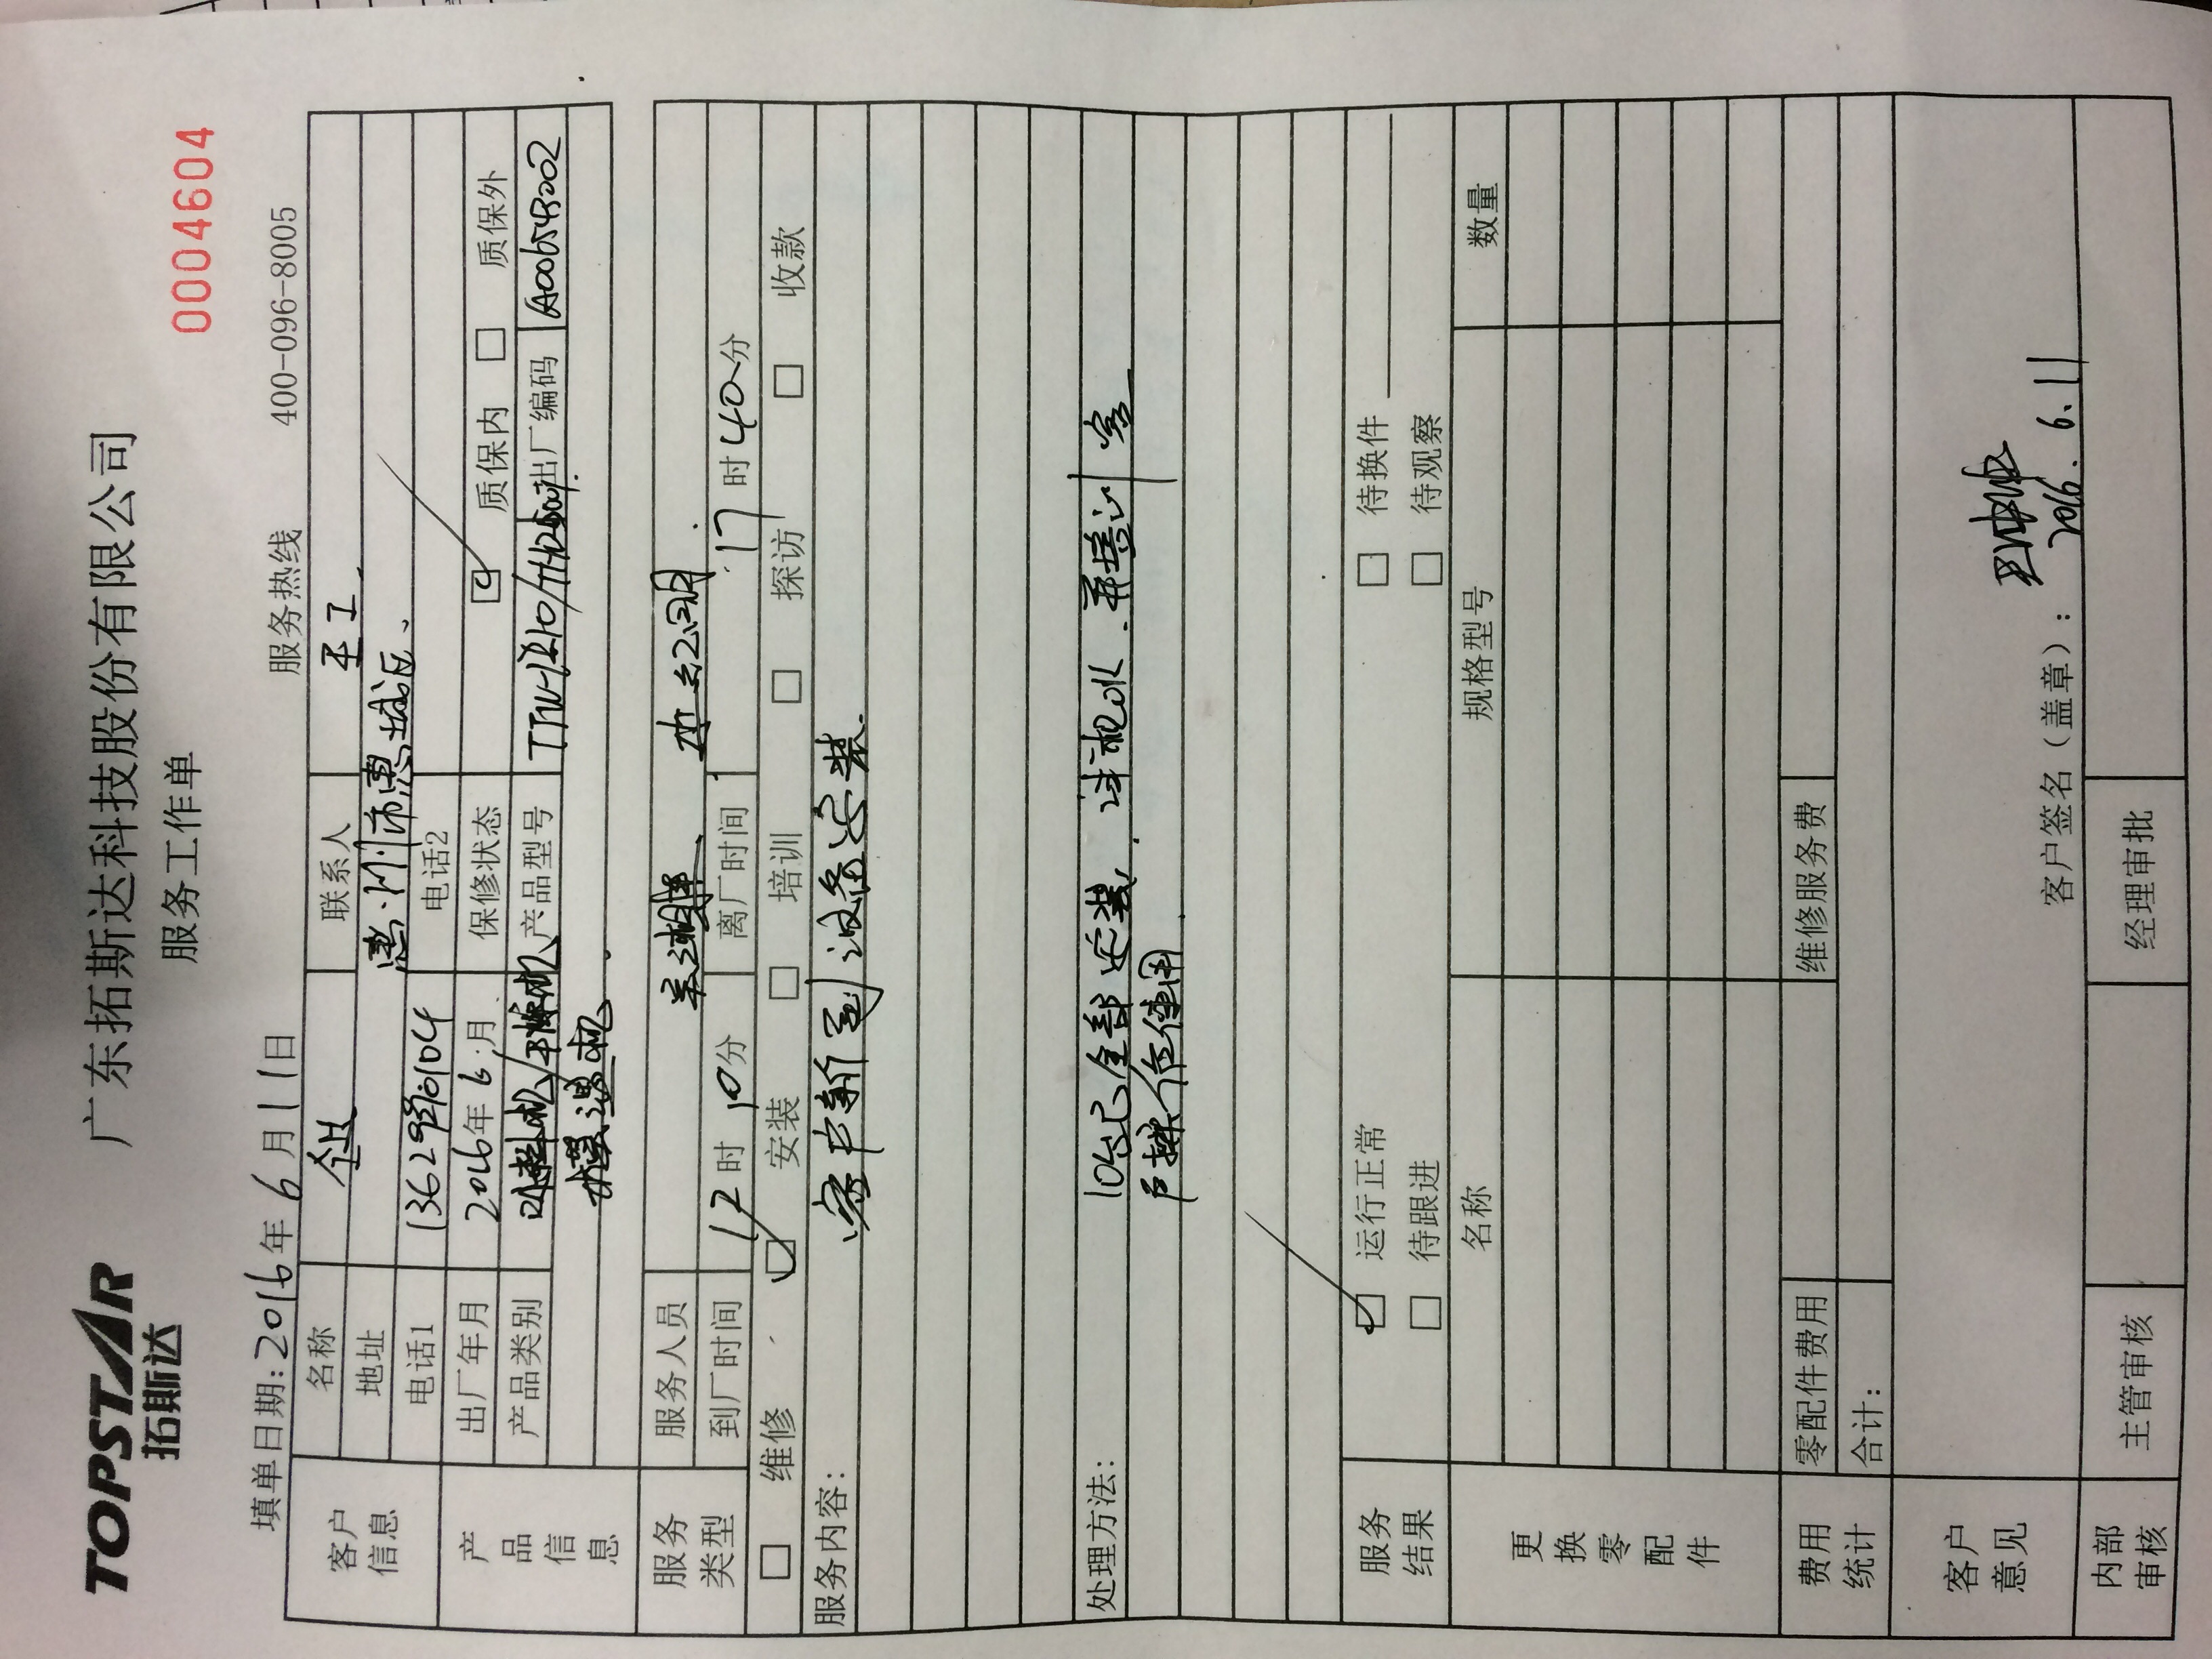 TOPSTAR
拓斯达
广东拓斯达科技股份有限公司
服务工作单
0004604
填单日期:2016年6月11日
服务热线 400-096-8005
客户信息
名称
联系人 王工
地址 惠州市惠城区
电话1
电话2
产品信息
出厂年月 2016年6月
保修状态 质保内 质保外
产品类别
产品型号
出厂编码
模温机
服务类型
服务人员
到厂时间 时10分
离厂时间 17时40分
维修 安装 培训 探访 收款
服务内容:
客户新到设备安装
处理方法:
10台已全部安装,试机OK.并培训客
户操作使用
服务结果
运行正常 待换件
待跟进 待观察
更换零配件
名称 规格型号 数量
费用统计
零配件费用 维修服务费
合计:
客户意见
客户签名(盖章):
2016.6.11
内部审核
主管审核 经理审批